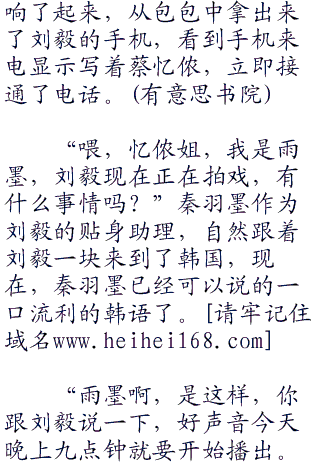 响了起来，从包包中拿出来
了刘毅的手机，看到手机来
电显示写着蔡忆侬，立即接
通了电话。(有意思书院)
“喂，忆侬姐，我是雨
墨，刘毅现在正在拍戏，有
什么事情吗？”秦羽墨作为
刘毅的贴身助理，自然跟着
刘毅一块来到了韩国，现
在，秦羽墨已经可以说的一
口流利的韩语了。[请牢记住
域名www.heihei168.com]
“雨墨啊，是这样，你
跟刘毅说一下，好声音今天
晚上九点钟就要开始播出。